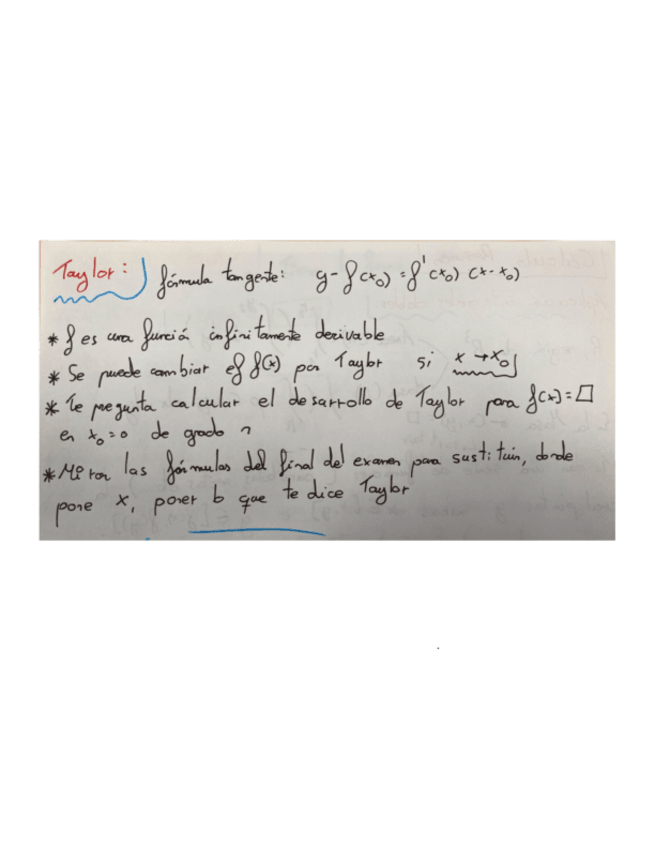 Taylor: fórmula tangente: y - f(x₀) = f'(x₀) (x - x₀)
* f es una función infinitamente derivable
* Se puede cambiar el f(x) por Taylor si x → x₀
* Te pregunta calcular el desarrollo de Taylor para f(x) = □
en x₀ = 0 de grado n
* Mirar las fórmulas del final del examen para sustituir, donde
pone x, poner lo que te dice Taylor